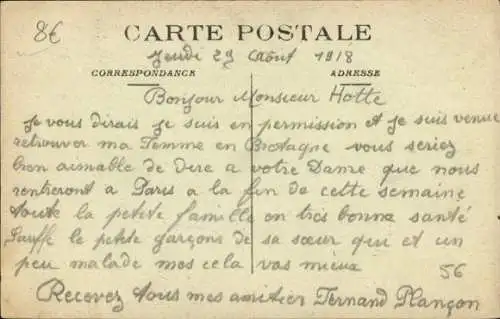 8€
CARTE POSTALE
Jeudi 29 Août 1918
CORRESPONDANCE
ADRESSE
Bonjour Monsieur Hotte
Je vous dirais Je suis en permission et Je suis venue
retrouver ma Femme en Bretagne vous seriez
bien aimable de dire a votre Dame que nous
rentreront a Paris a la fin de cette semaine
toute la petite famille on très bonne santé
Sauffe le petite garçons de sa sœur qui et un
peu malade mes cela vas mieux
56
Recevez tous mes amitier Fernand Plançon